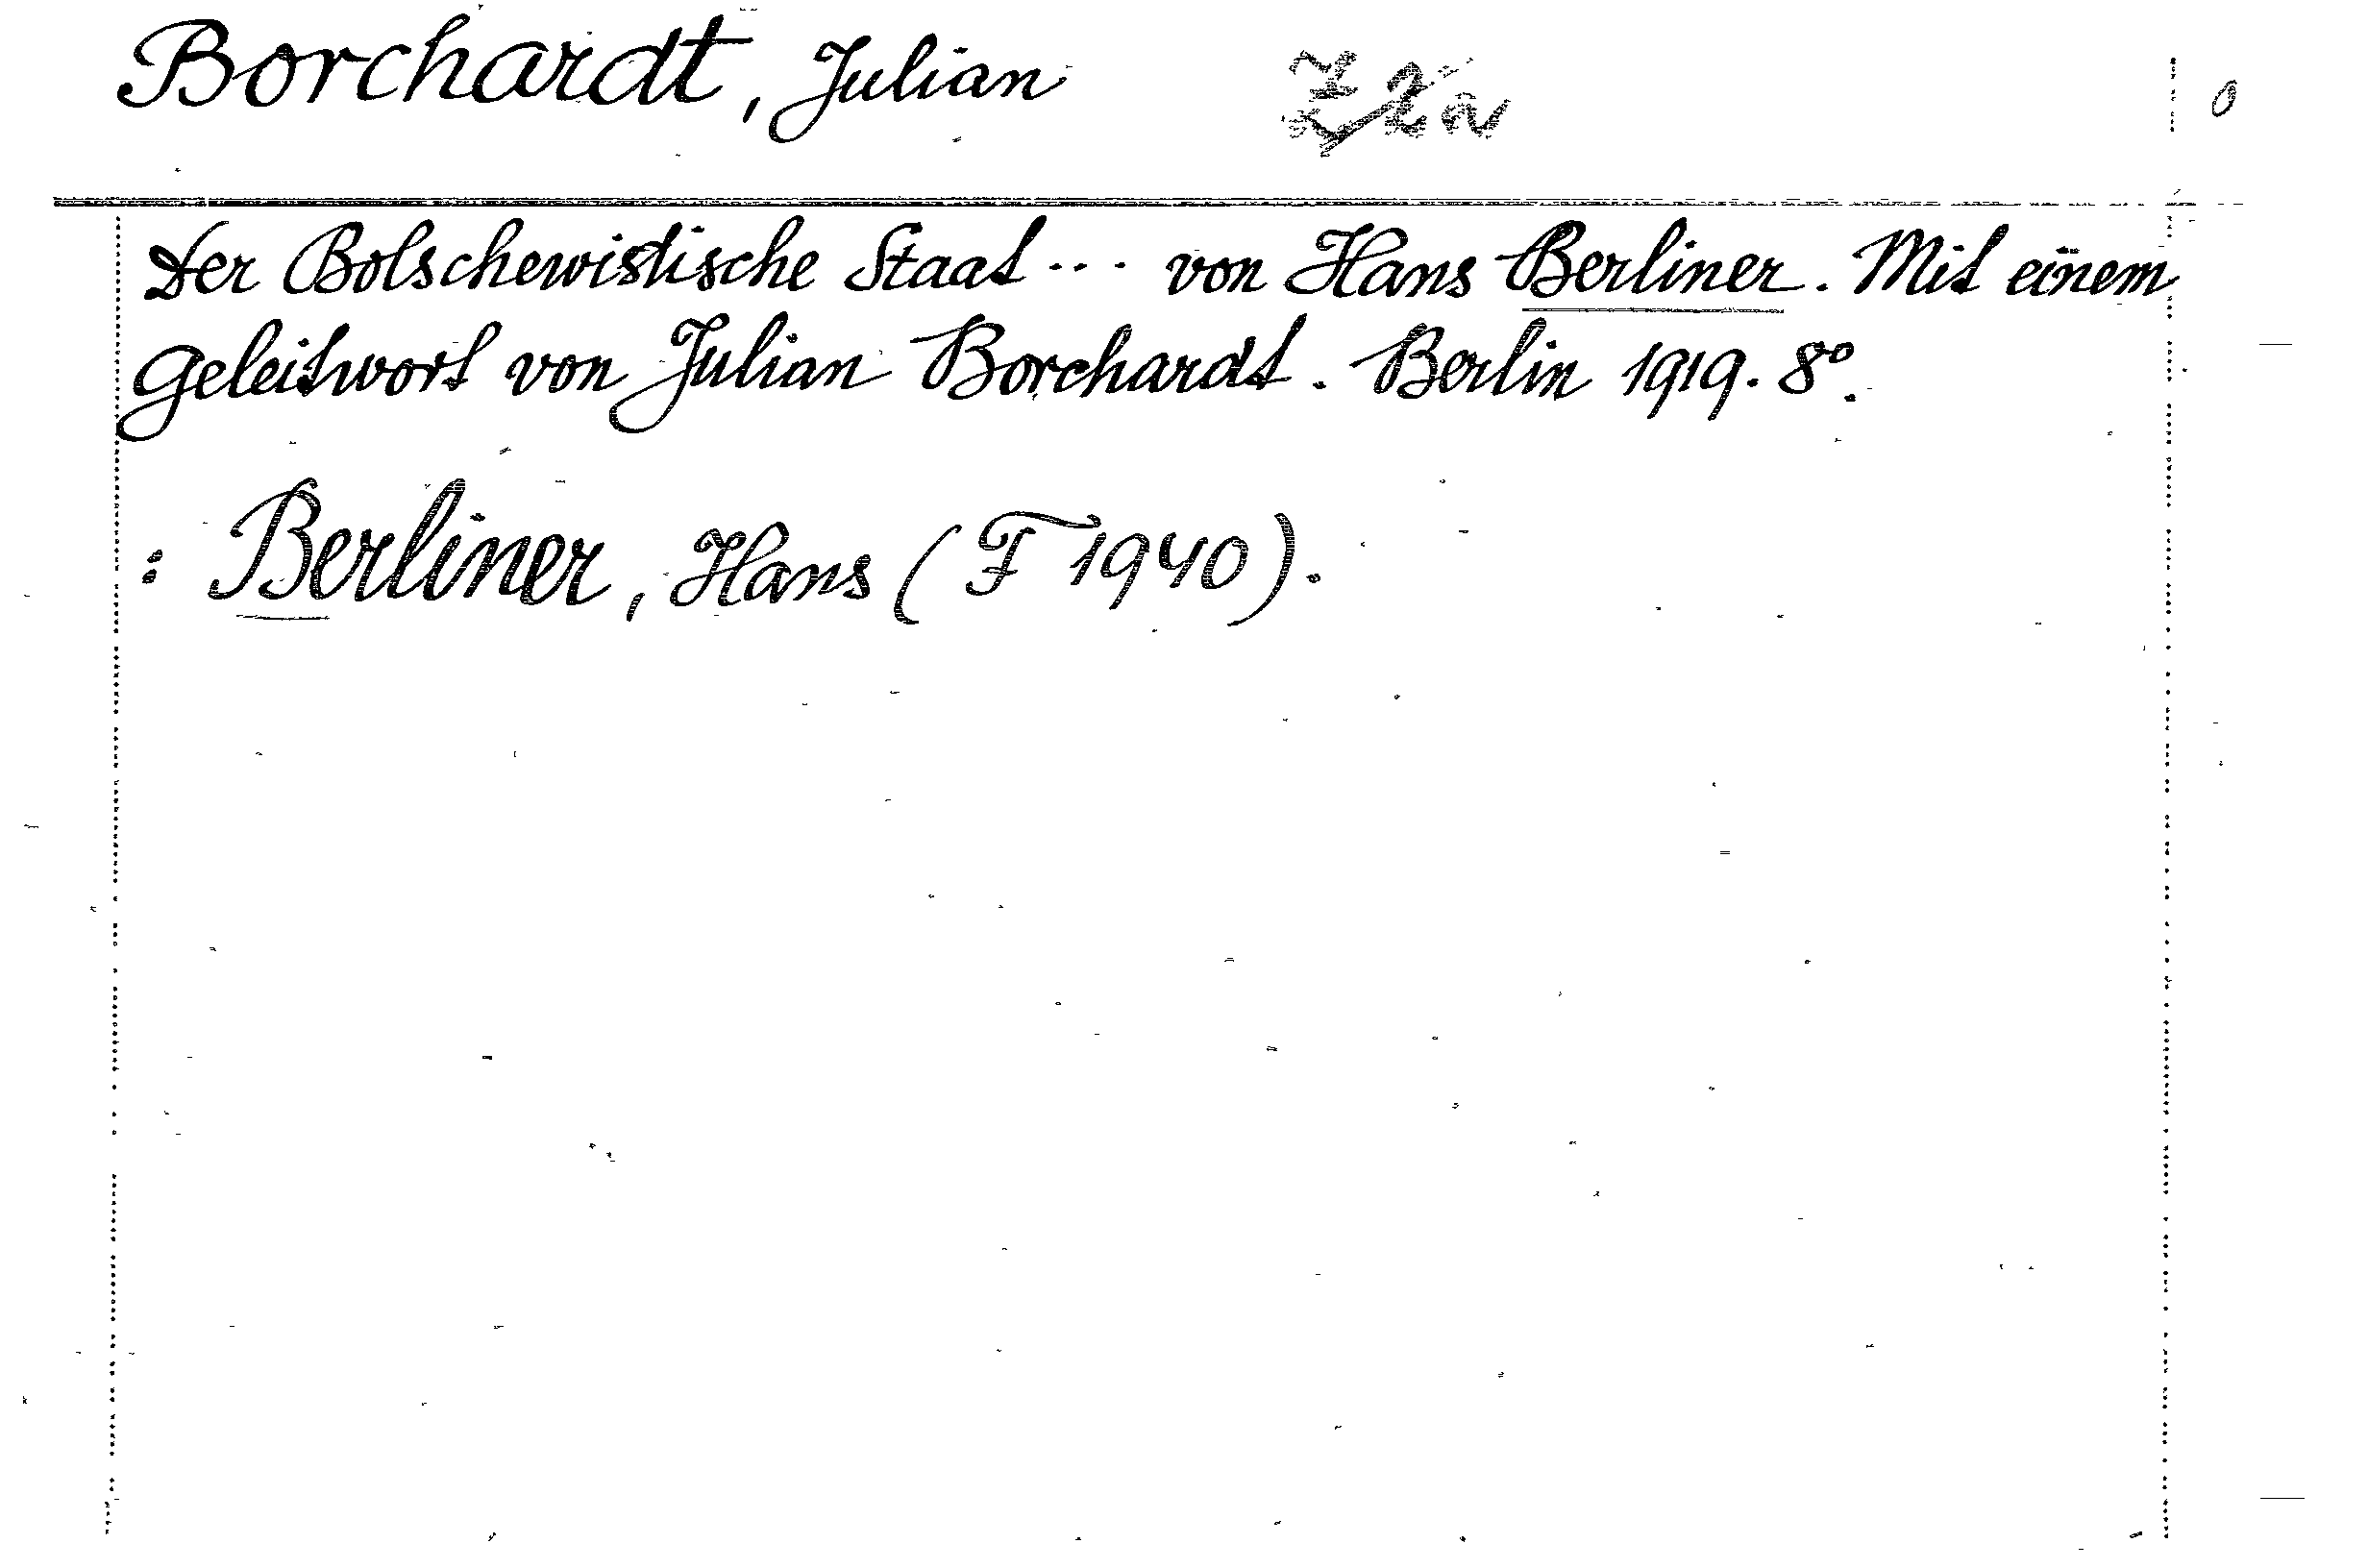 Borchardt, Julian 0
Der Bolschewistische Staat ... von Hans Berliner. Mit einem
Geleitwort von Julian Borchardt. Berlin 1919. 8°.
: Berliner, Hans (F 1940).